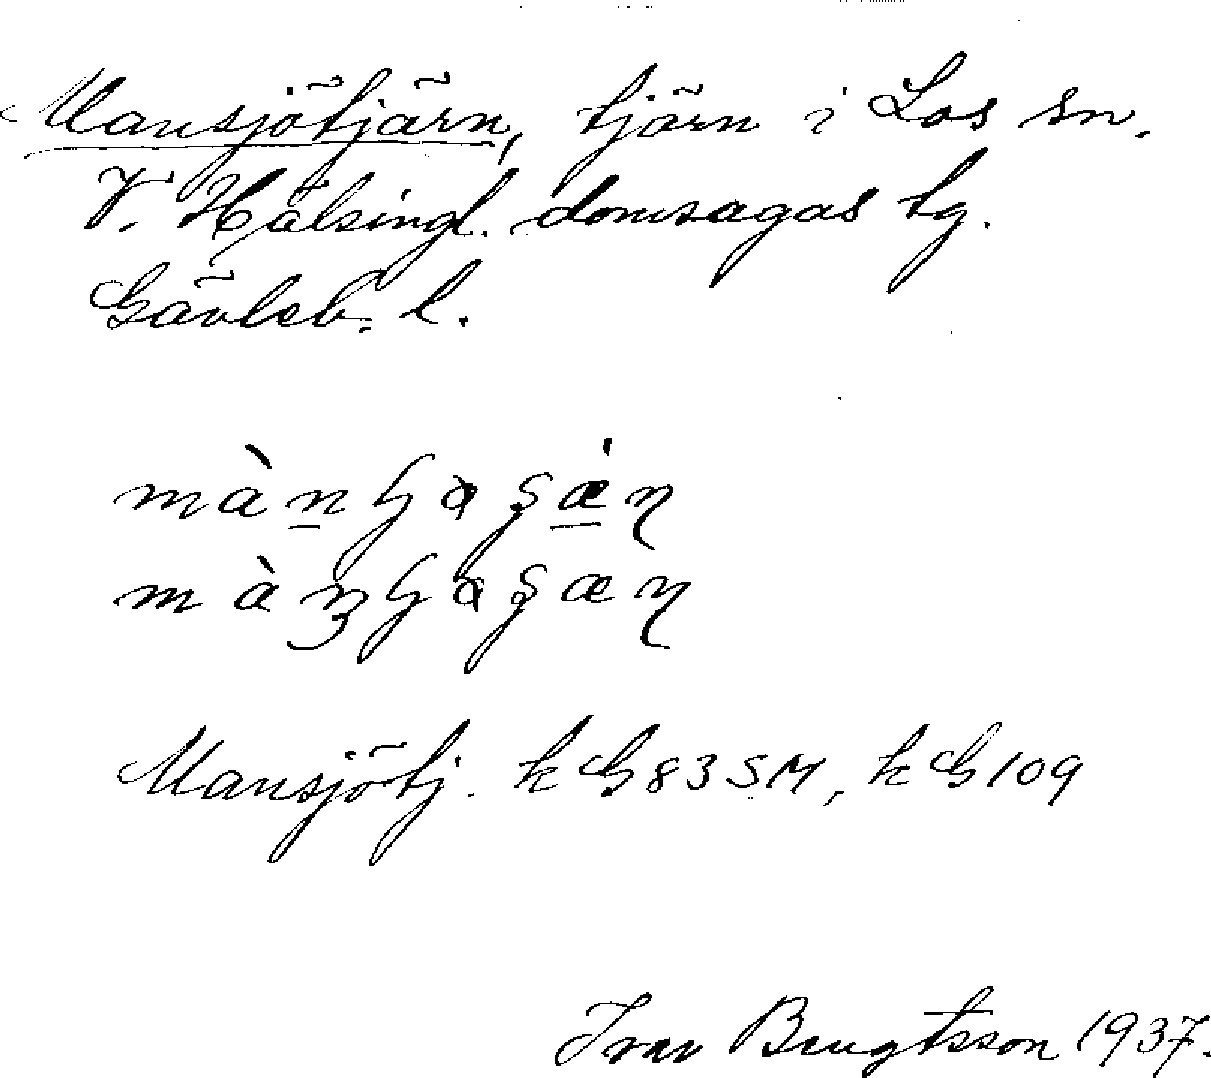 Mansjötjärn, tjärn i Los sn.
V. Hälsingl. domsagas tg.
Gävleb. l.
Mansjötj. k G83SM, k G109
Ivar Bengtsson 1937.